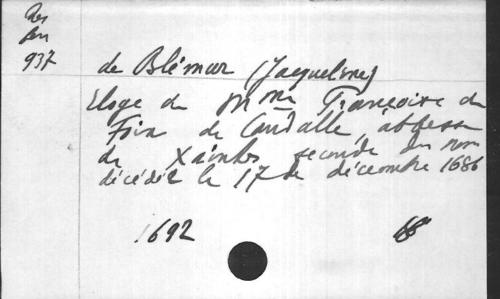 Res
937
de Blémur (Jacqueline)
Eloge de Mme Françoise de
Foix de Candalle, abbesse
de Xaintes, seconde du nom
décédée le 17 de décembre 1686
1692